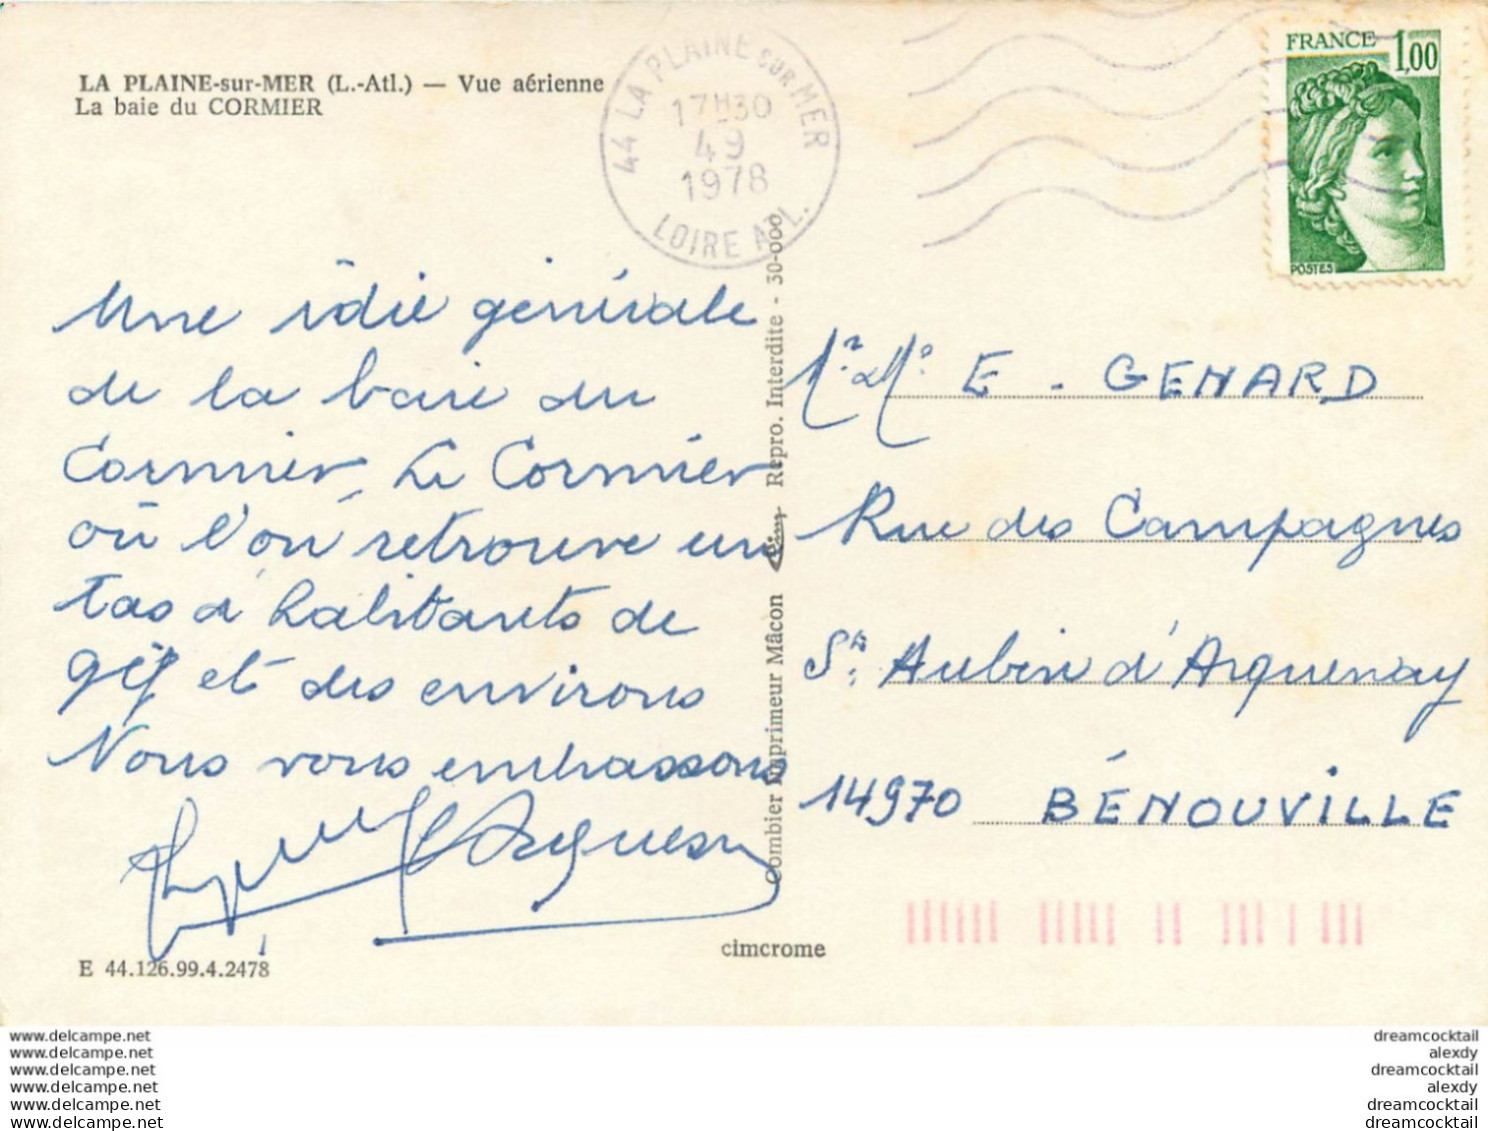 LA PLAINE-sur-MER (L.-Atl.) — Vue aérienne
La baie du CORMIER
44 LA PLAINE SUR MER
17H30
4 9
1978
LOIRE ATL.
FRANCE 1,00
POSTES
Une idée générale
de la baie du
Cormier. Le Cormier
où l'on retrouve un
tas d'habitants de
gif et des environs
Nous vous embrassons
Combier Imprimeur Mâcon Repro. Interdite - 30-000
Mr. & Me. E. GENARD
Rue des Campagnes
St. Aubin d'Arquenay
14970 BÉNOUVILLE
E 44.126.99.4.2478
cimcrome
www.delcampe.net
www.delcampe.net
www.delcampe.net
www.delcampe.net
www.delcampe.net
www.delcampe.net
dreamcocktail
alexdy
dreamcocktail
alexdy
dreamcocktail
dreamcocktail